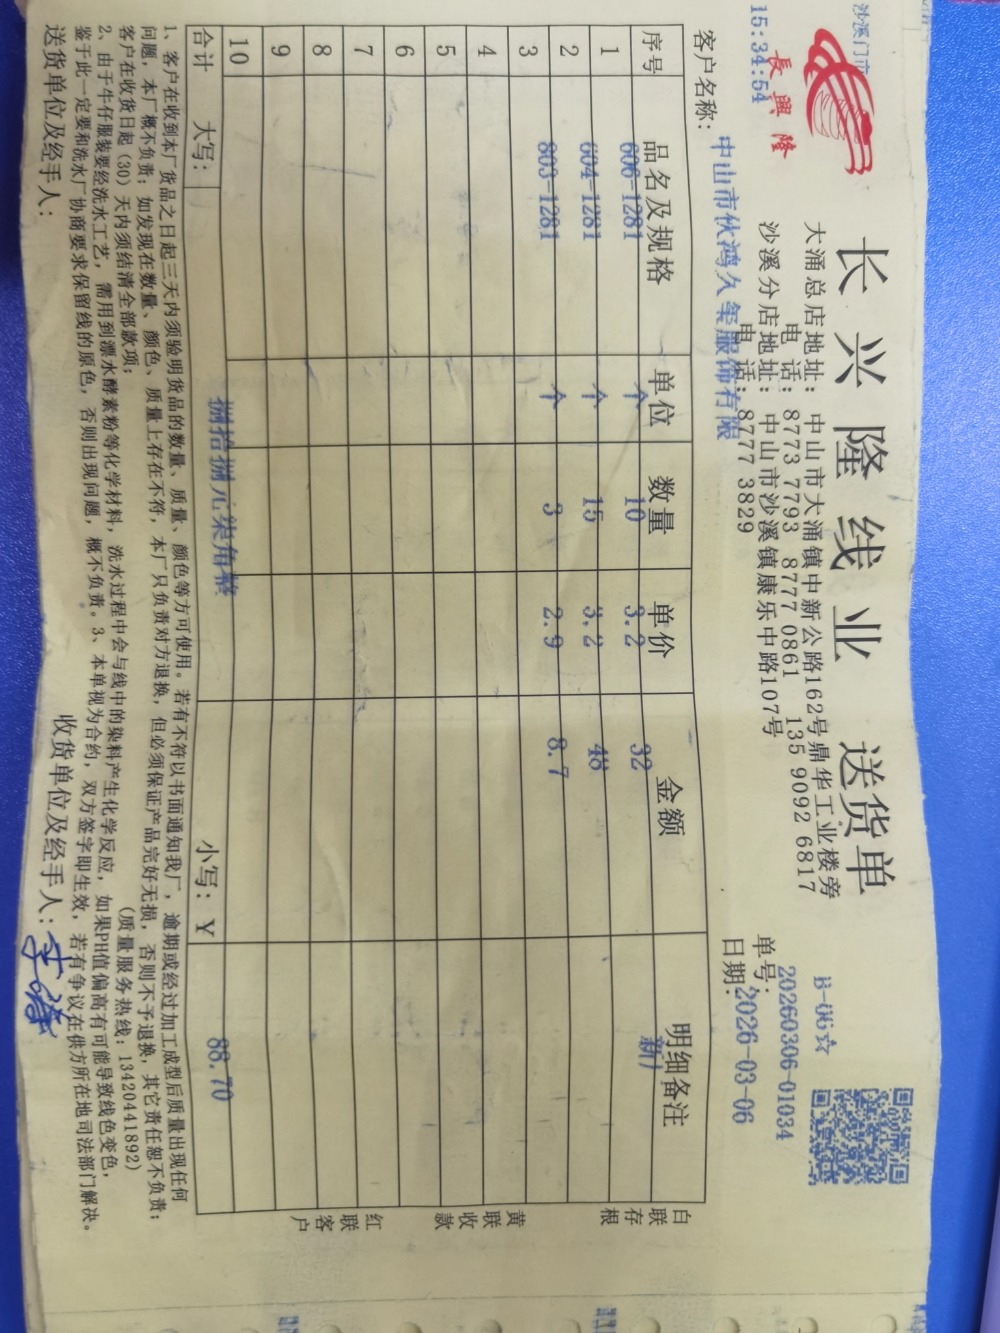 沙溪门市
15:34:54
長興隆
长兴隆线业 送货单
大涌总店地址：中山市大涌镇中新公路162号鼎华工业楼旁
电 话：8773 7793 8777 0861 135 9092 6817
沙溪分店地址：中山市沙溪镇康乐中路107号
电 话：8777 3829
B-06☆
单号：20260306-01034
日期：2026-03-06
客户名称：中山市伙鸿久玺服饰有限
序号 品名及规格 单位 数量 单价 金额 明细备注
1 606-1281 个 10 3.2 32 新厂
2 604-1281 个 15 3.2 48
3 803-1281 个 3 2.9 8.7
4
5
6
7
8
9
10
合计 大写： 捌拾捌元柒角整 小写：￥ 88.70
白联存根
黄联收款
红联客户
1、客户在收到本厂货品之日起三天内须验明货品的数量、质量、颜色等方可使用。若有不符以书面通知我厂，逾期或经过加工成型后质量出现任何
问题，本厂概不负责；如发现在数量、颜色、质量上存在不符，本厂只负责对方退换，但必须保证产品完好无损，否则不予退换，其它责任恕不负责；
客户在收货日起（30）天内须结清全部款项； （质量服务热线：13420441892）
2、由于牛仔服装要经洗水工艺，需用到漂水酵素粉等化学材料，洗水过程中会与线中的染料产生化学反应，如果PH值偏高有可能导致线色变色，
鉴于此一定要和洗水厂协商要求保留线的原色，否则出现问题，概不负责。3、本单视为合约，双方签字即生效，若有争议在供方所在地司法部门解决。
送货单位及经手人： 收货单位及经手人：